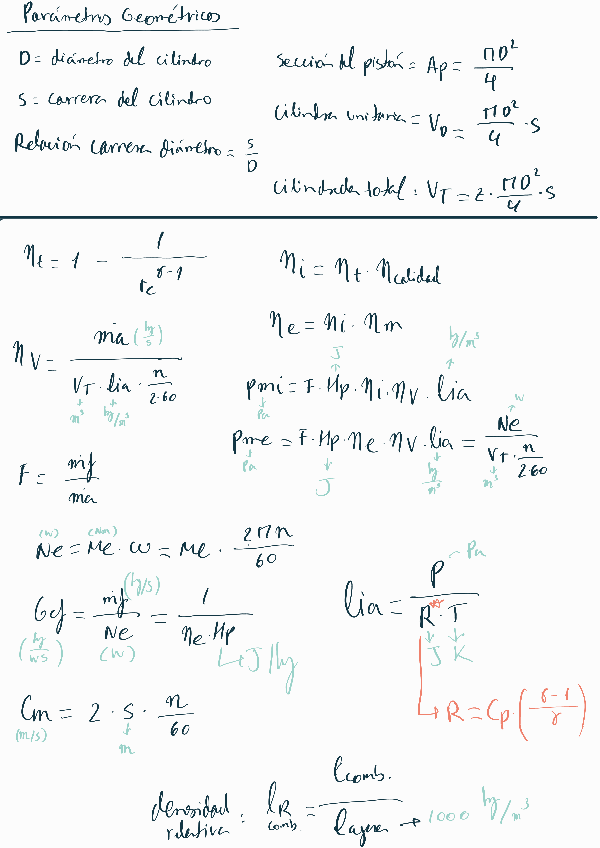 Parámetros Geométricos
D = diámetro del cilindro
S = carrera del cilindro
Relación carrera diámetro = S/D
Sección del pistón = Ap = ΠD²/4
Cilindra unitaria = V_D = ΠD²/4 · S
Cilindrada total = V_T = z · ΠD²/4 · S
η_t = 1 - 1/r_c^(γ-1)
η_i = η_t · η_calidad
η_e = η_i · η_m
η_V = ṁa (kg/s) / (V_T · ρia · n/2·60)
m³ kg/m³
J kg/m³
pmi = F · Hp · η_i · η_V · ρia
Pa
W
pme = F · Hp · η_e · η_V · ρia = Ne / (V_T · n/2·60)
Pa J kg/m³ m³
F = ṁf / ṁa
(W) (Nm)
Ne = Me · ω = Me · 2Πn/60
Gef = ṁf (kg/s) / Ne = 1 / (η_e · Hp)
(kg/WS) (W) J/kg
ρia = P / (R · T)
Pa
J K
R = Cp · ((γ-1)/γ)
Cm = 2 · S · n/60
(m/s) m
densidad relativa : ρ_R comb = ρcomb. / ρagua → 1000 kg/m³